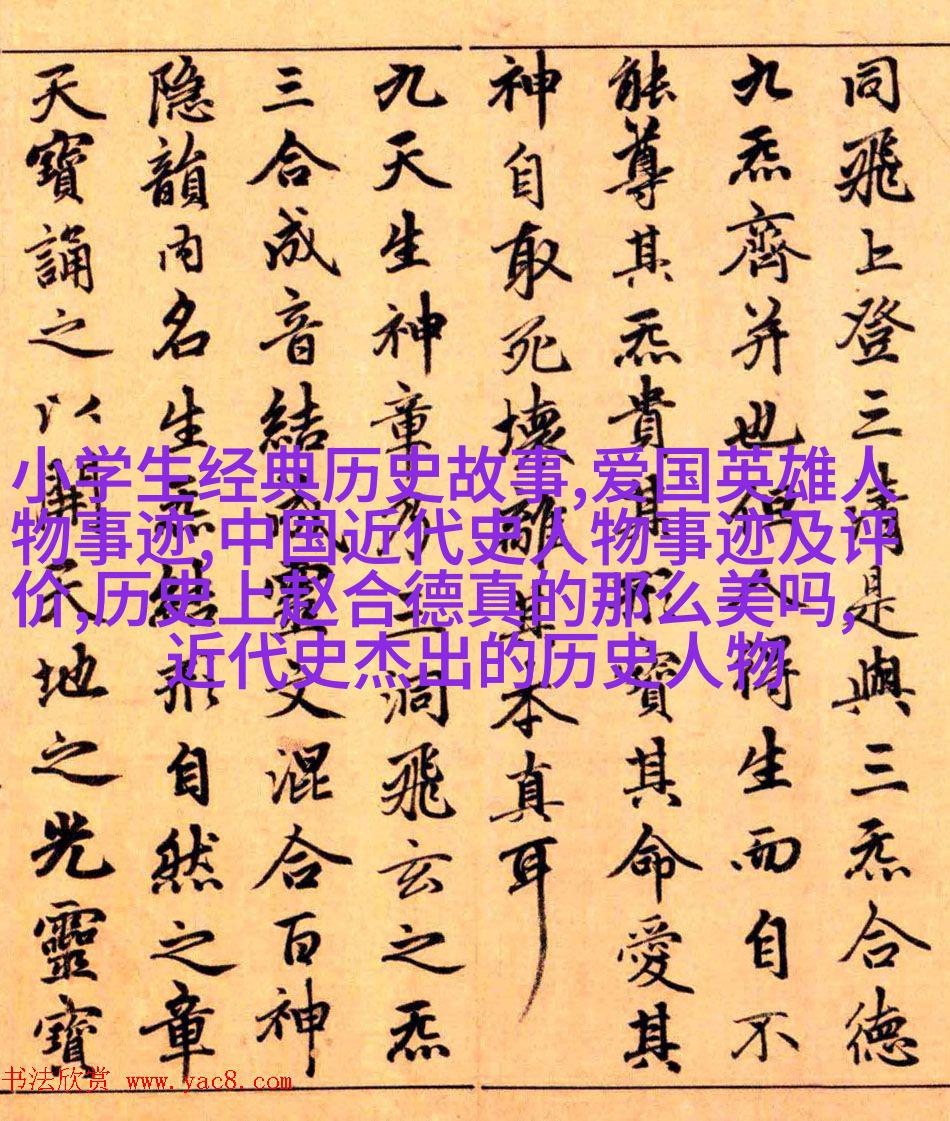 同飛上登三清是與三炁合德
九炁齊并也但人得生而自不
能尊其炁貴其形寶其命愛其
神自取死壞離其本真耳
九天生神章乃三洞飛玄之炁
三合成音結成靈文混合百神
隱韻內名生炁結形自然之章
天寶誦之以開天地之光靈寶
小学生经典历史故事,爱国英雄人
物事迹,中国近代史人物事迹及评
价,历史上赵合德真的那么美吗,
近代史杰出的历史人物
书法欣赏 www.yac8.com